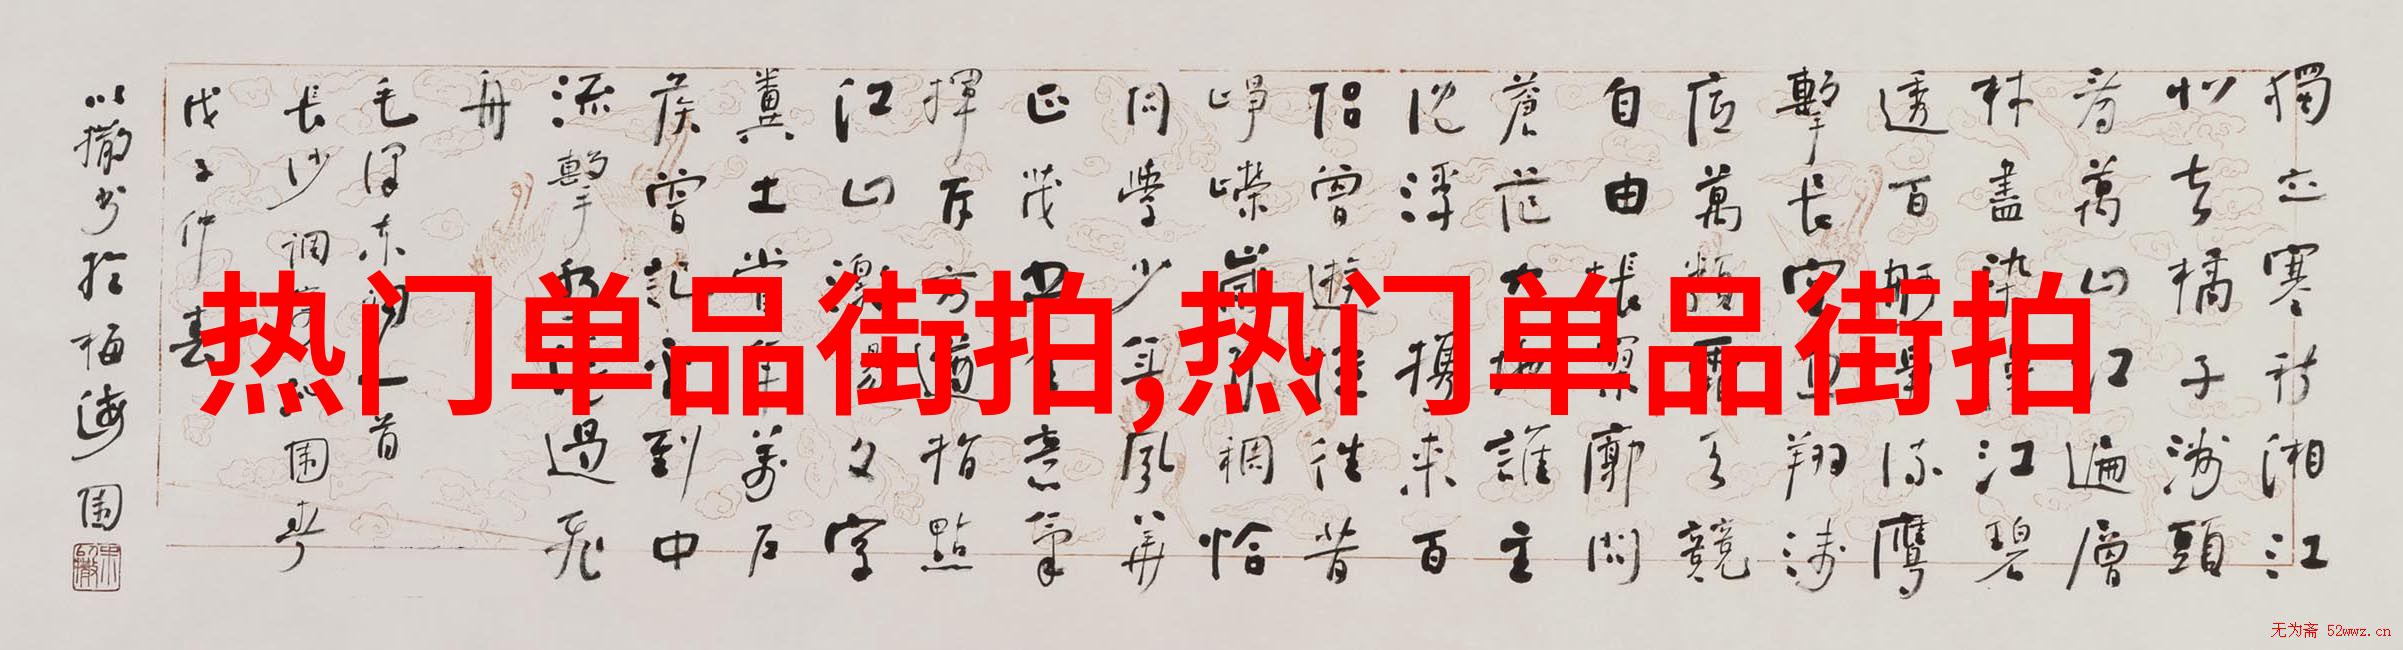 獨立寒秋湘江
北去橘子洲頭
看萬山紅遍層
林盡染漫江碧
透百舸爭流鷹
擊長空魚翔淺
底萬類霜天競
自由悵寥廓問
蒼茫大地誰主
沉浮攜來百
侣曾遊憶往昔
崢嶸歲月稠恰
同學少年風華
正茂書生意氣
揮斥方遒指點
江山激揚文字
糞土當年萬户
侯曾記否到中
流擊水浪遏飛
舟
毛澤東詞一首
長沙調寄沁園春
戊子仲春
以撒書於梅海園
热门单品街拍,热门单品街拍
无为斋 52wwz.cn